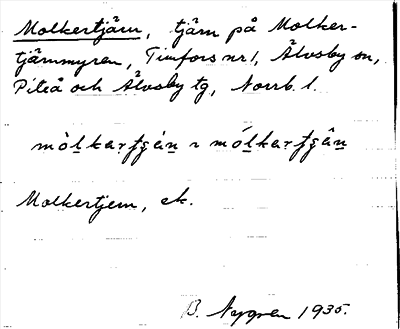 Molkertjärn, tjärn på Molker-
tjärnmyren, Timfors nr 1, Älvsby sn,
Piteå och Älvsby tg, Norrb. l.
mòlkarʈʂä́n ~ mólkarʈʂä̂n
Molkertjern, ek.
B. Nygren 1935.